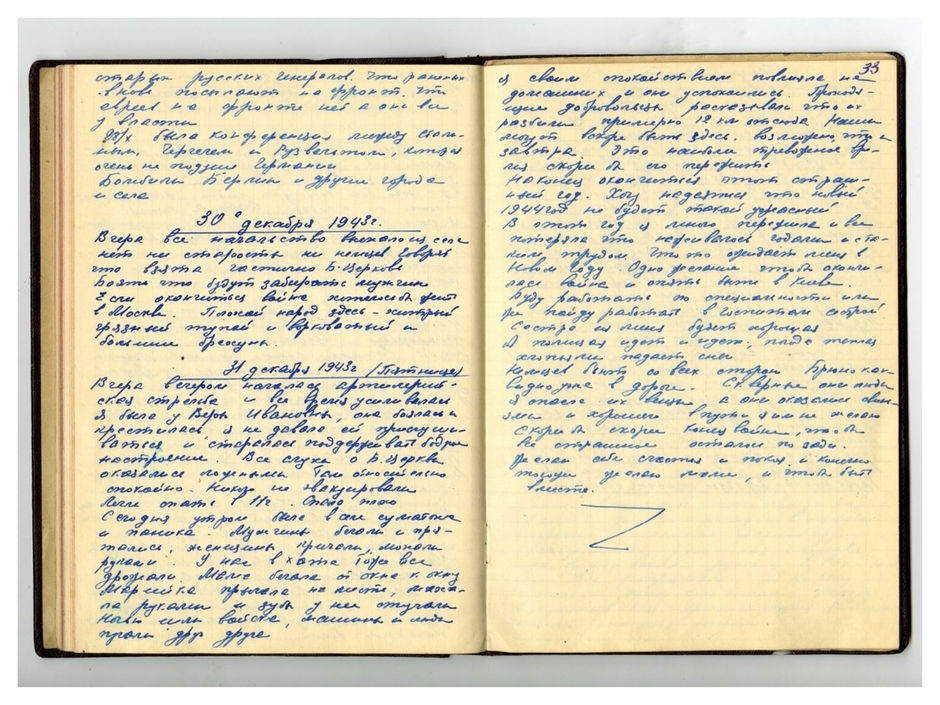 старых русских генералов. Что раненых
вновь посылают на фронт. Что
евреев на фронте нет а они все
у власти
была конференция между Стали-
ным, Черчелем и Рузвельтом, которая
очень не поздоя Германии
Бомбили Берлин и другие города
и села
30го декабря 1943г.
Вчера все начальство выехало из села
нет ни старосты ни немцев Говорят
что взята частично Б. Церковь
Боятся что будут забирать мужчин
Если окончиться война хотелось бы жить
в Москве. Плохой народ здесь - хитрый
грязный тупой и вороватый и
большие брехуны.
31 декабря 1943г (Пятница)
Вчера вечером началась артилерий-
ская стрельба и все время усиливалась
Я была у Веры Ивановны, она боялась и
крестилась, я не давала ей прислуши-
ваться и старалась поддерживать бодрое
настроение. Все слухи о Б. Церкви
оказались ложными Там относительно
спокойно. Никого не эвакуировали
Легли спать в 11г. Спала плохо
Сегодня утром была в селе суматоха
и паника. Мужчины бегали и пря-
тались, женщины кричали, махали
руками. У нас в хате тоже все
дрожали. бегала от окна к окну
Марийка прыгала на месте, маха-
ла руками и зубы у нее стучали
шли войска, машины и люди
друг друга
33
я своим спокойствием повлияла на
домашних и они успокоились. Приходя-
щие добровольцы рассказывали что их
разбили примерно 12 км отсюда Наши
могут вскоре быть здесь. возможно, что и
завтра. Это наиболее тревожное вре-
мя скорей бы его пережить
Наконец окончиться этот страш-
ный год. Хочу надеяться что новый
1944 год не будет такой ужасный
В этот год я много пережила и все
потеряла что наживалось годами и ста-
ким трудом. Что то ожидает меня в
Новом году. Одно желание чтобы окончи-
лась война и опять быть в Киеве.
Буду работать по специальности или
же пойду работать в Госпиталь сестрой
Сестра из меня будет хорошая
А полицая идет и идет, тепло
хлопьями падает снег
Немцев бьют со всех сторон
видно уже в дороге. Скверные они люди
я спасла их вещи а они оказались свинь-
ями и хорошего в пути я им не желаю
Скорей бы скорее конец войне, чтобы
все страшное осталось позади.
Желаю себе счастья и покоя и конечно
того же желаю маме, и чтобы быть
вместе.